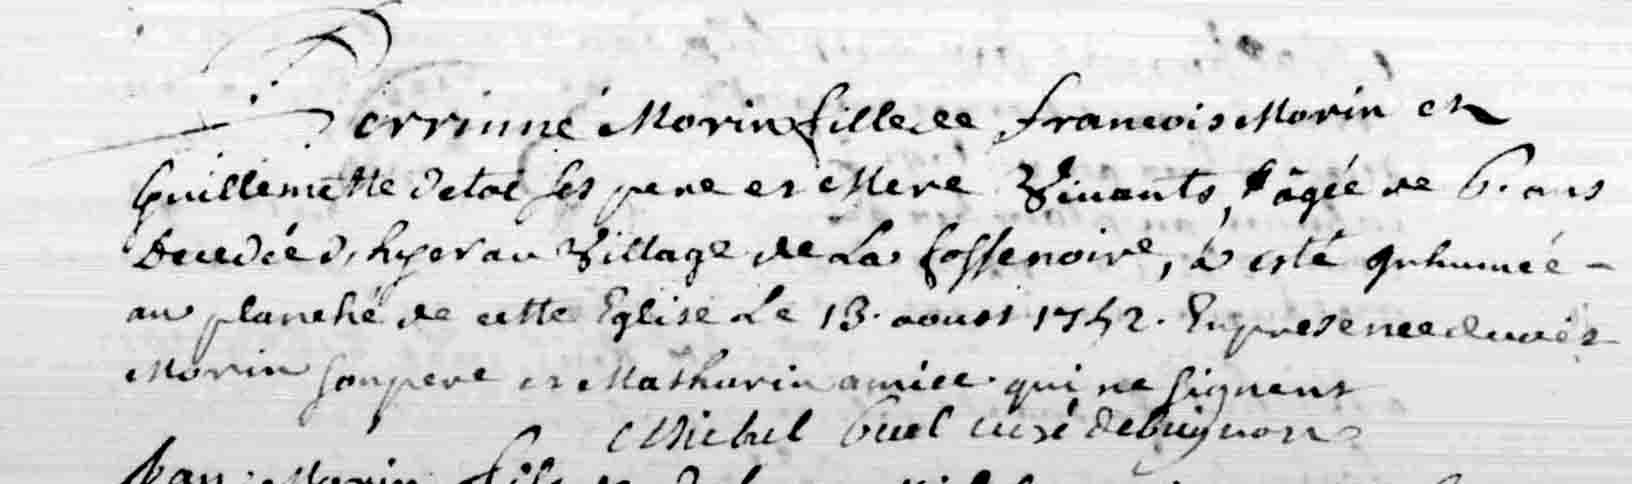 Perrinne Morin fille de francois Morin et
Guillemette detoc ses pere et Mere Vivants, âgée de 6. ans
Decedée d'hyer au Village de La fossenoire, a esté Inhumée -
au planché de cette Eglise Le 13. aoust 1742. En presence
Morin son pere et Mathurin amice qui ne signent
Michel Guel curé de bignon
Jean Morin fils